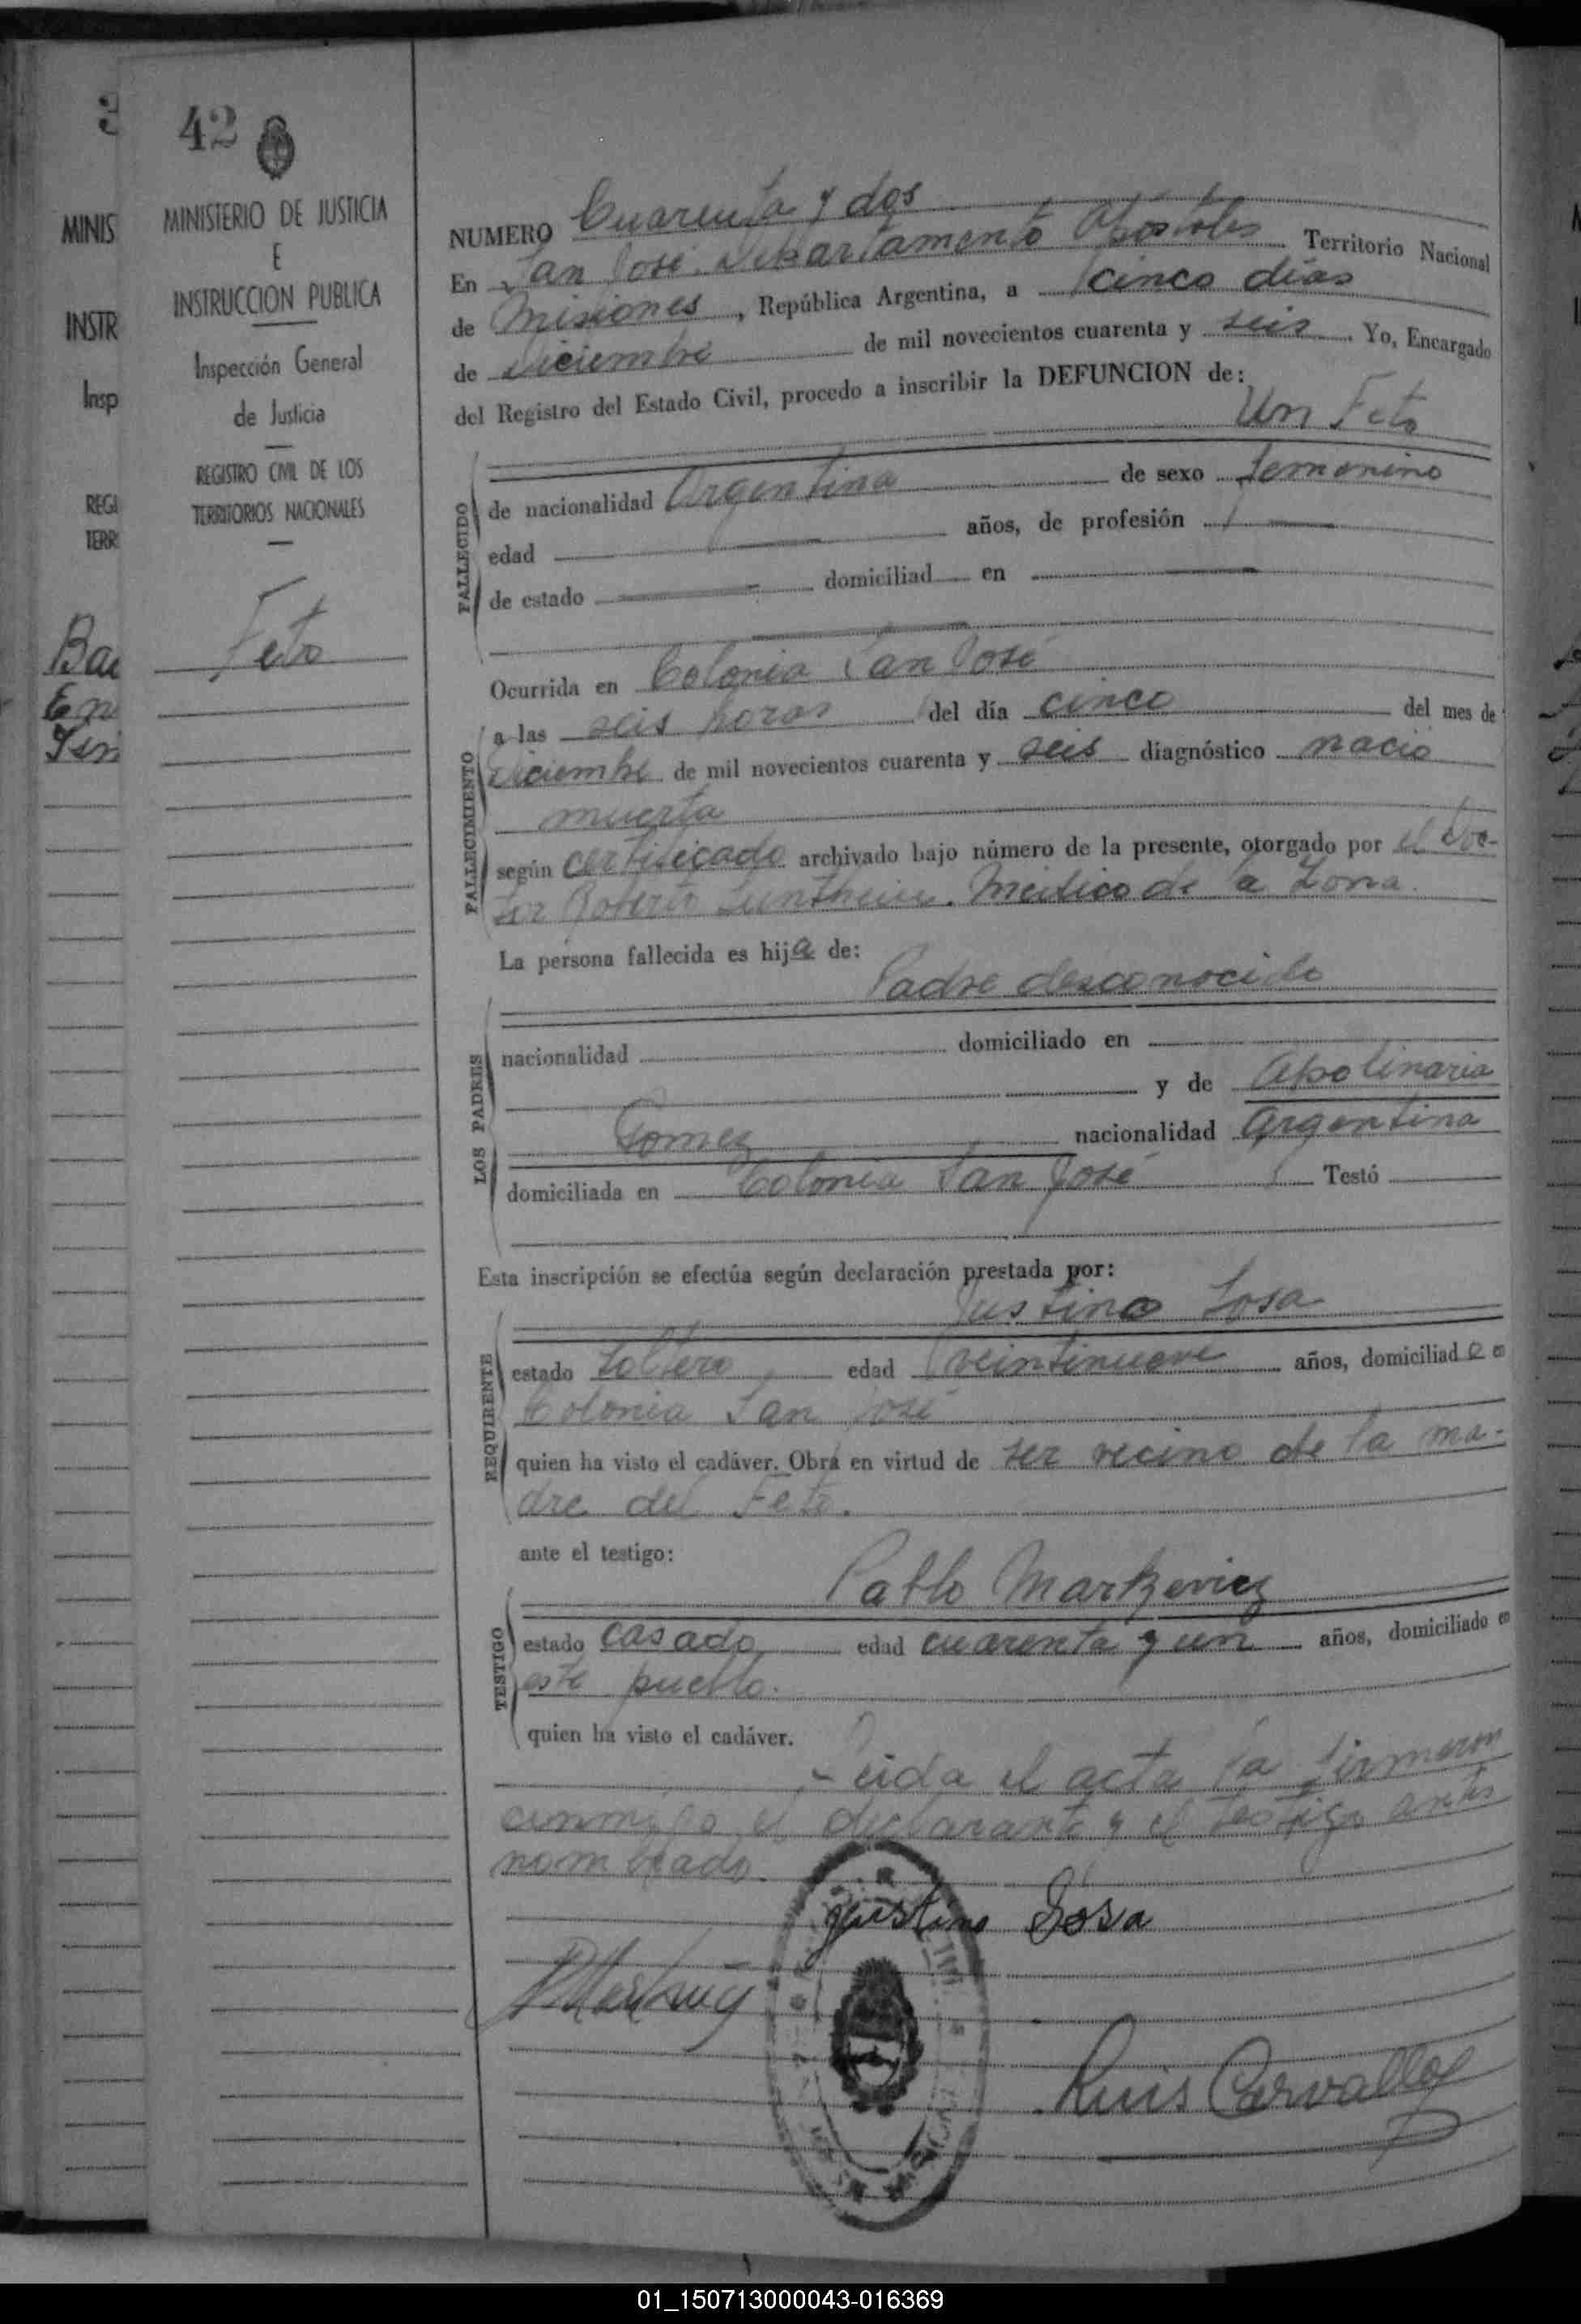 42
MINISTERIO DE JUSTICIA
E
INSTRUCCION PUBLICA
Inspección General
de Justicia
REGISTRO CIVIL DE LOS
TERRITORIOS NACIONALES
Feto
MINIS
INSTR
Insp
REGI
TERR
NUMERO Cuarenta y dos
En San José. Departamento Apóstoles Territorio Nacional
de Misiones, República Argentina, a cinco días
de Diciembre de mil novecientos cuarenta y seis. Yo, Encargado
del Registro del Estado Civil, procedo a inscribir la DEFUNCION de:
Un Feto
FALLECIDO
de nacionalidad Argentina de sexo femenino
edad años, de profesión
de estado domiciliad en
Ocurrida en Colonia San José
FALLECIMIENTO
a las seis horas del día cinco del mes de
Diciembre de mil novecientos cuarenta y seis diagnóstico nació
muerta
según certificado archivado bajo número de la presente, otorgado por el Doc-
tor Roberto Médico de la Zona.
La persona fallecida es hija de:
Padre desconocido
LOS PADRES
nacionalidad domiciliado en
y de Apolinaria
Gomez nacionalidad Argentina
domiciliada en Colonia San José Testó
Esta inscripción se efectúa según declaración prestada por:
Justino Sosa
REQUIRENTE
estado Soltero edad veintinueve años, domiciliado en
Colonia San José
quien ha visto el cadáver. Obra en virtud de ser vecino de la ma-
dre del Feto.
ante el testigo:
Pablo Markevicz
TESTIGO
estado casado edad cuarenta y un años, domiciliado en
este pueblo.
quien ha visto el cadáver.
Leida el acta la firmaron
conmigo el declarante y el testigo antes
nombrado.
Justino Sosa
Luis Carvallo
01_150713000043-016369